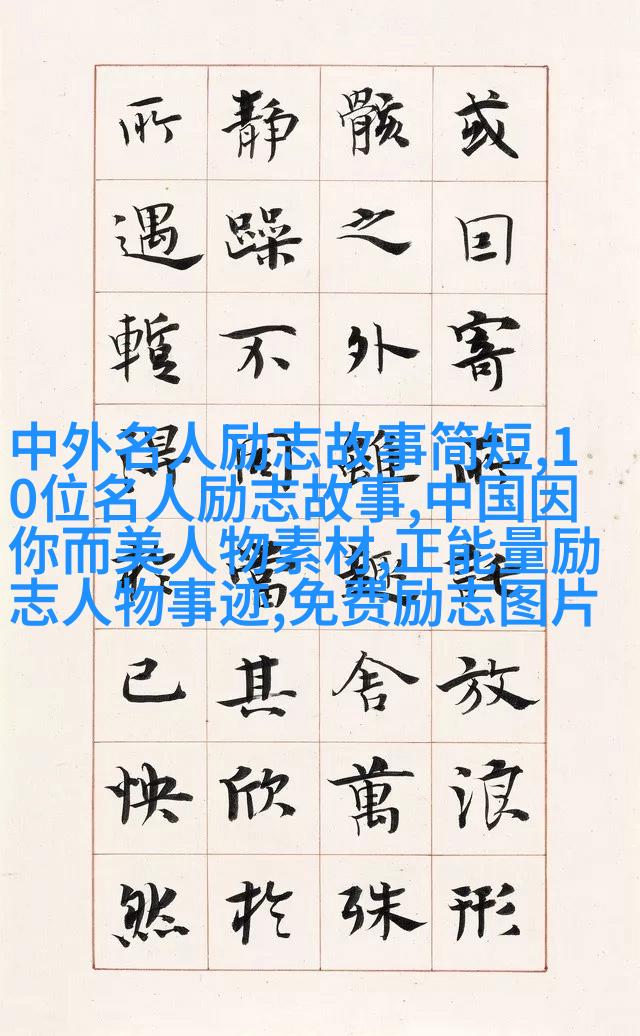 或囙寄所託放浪形
骸之外雖趣舍萬殊
静躁不同當其欣於
所遇暫得於己怏然
中外名人励志故事简短,1
0位名人励志故事,中国因
你而美人物素材,正能量励
志人物事迹,免费励志图片